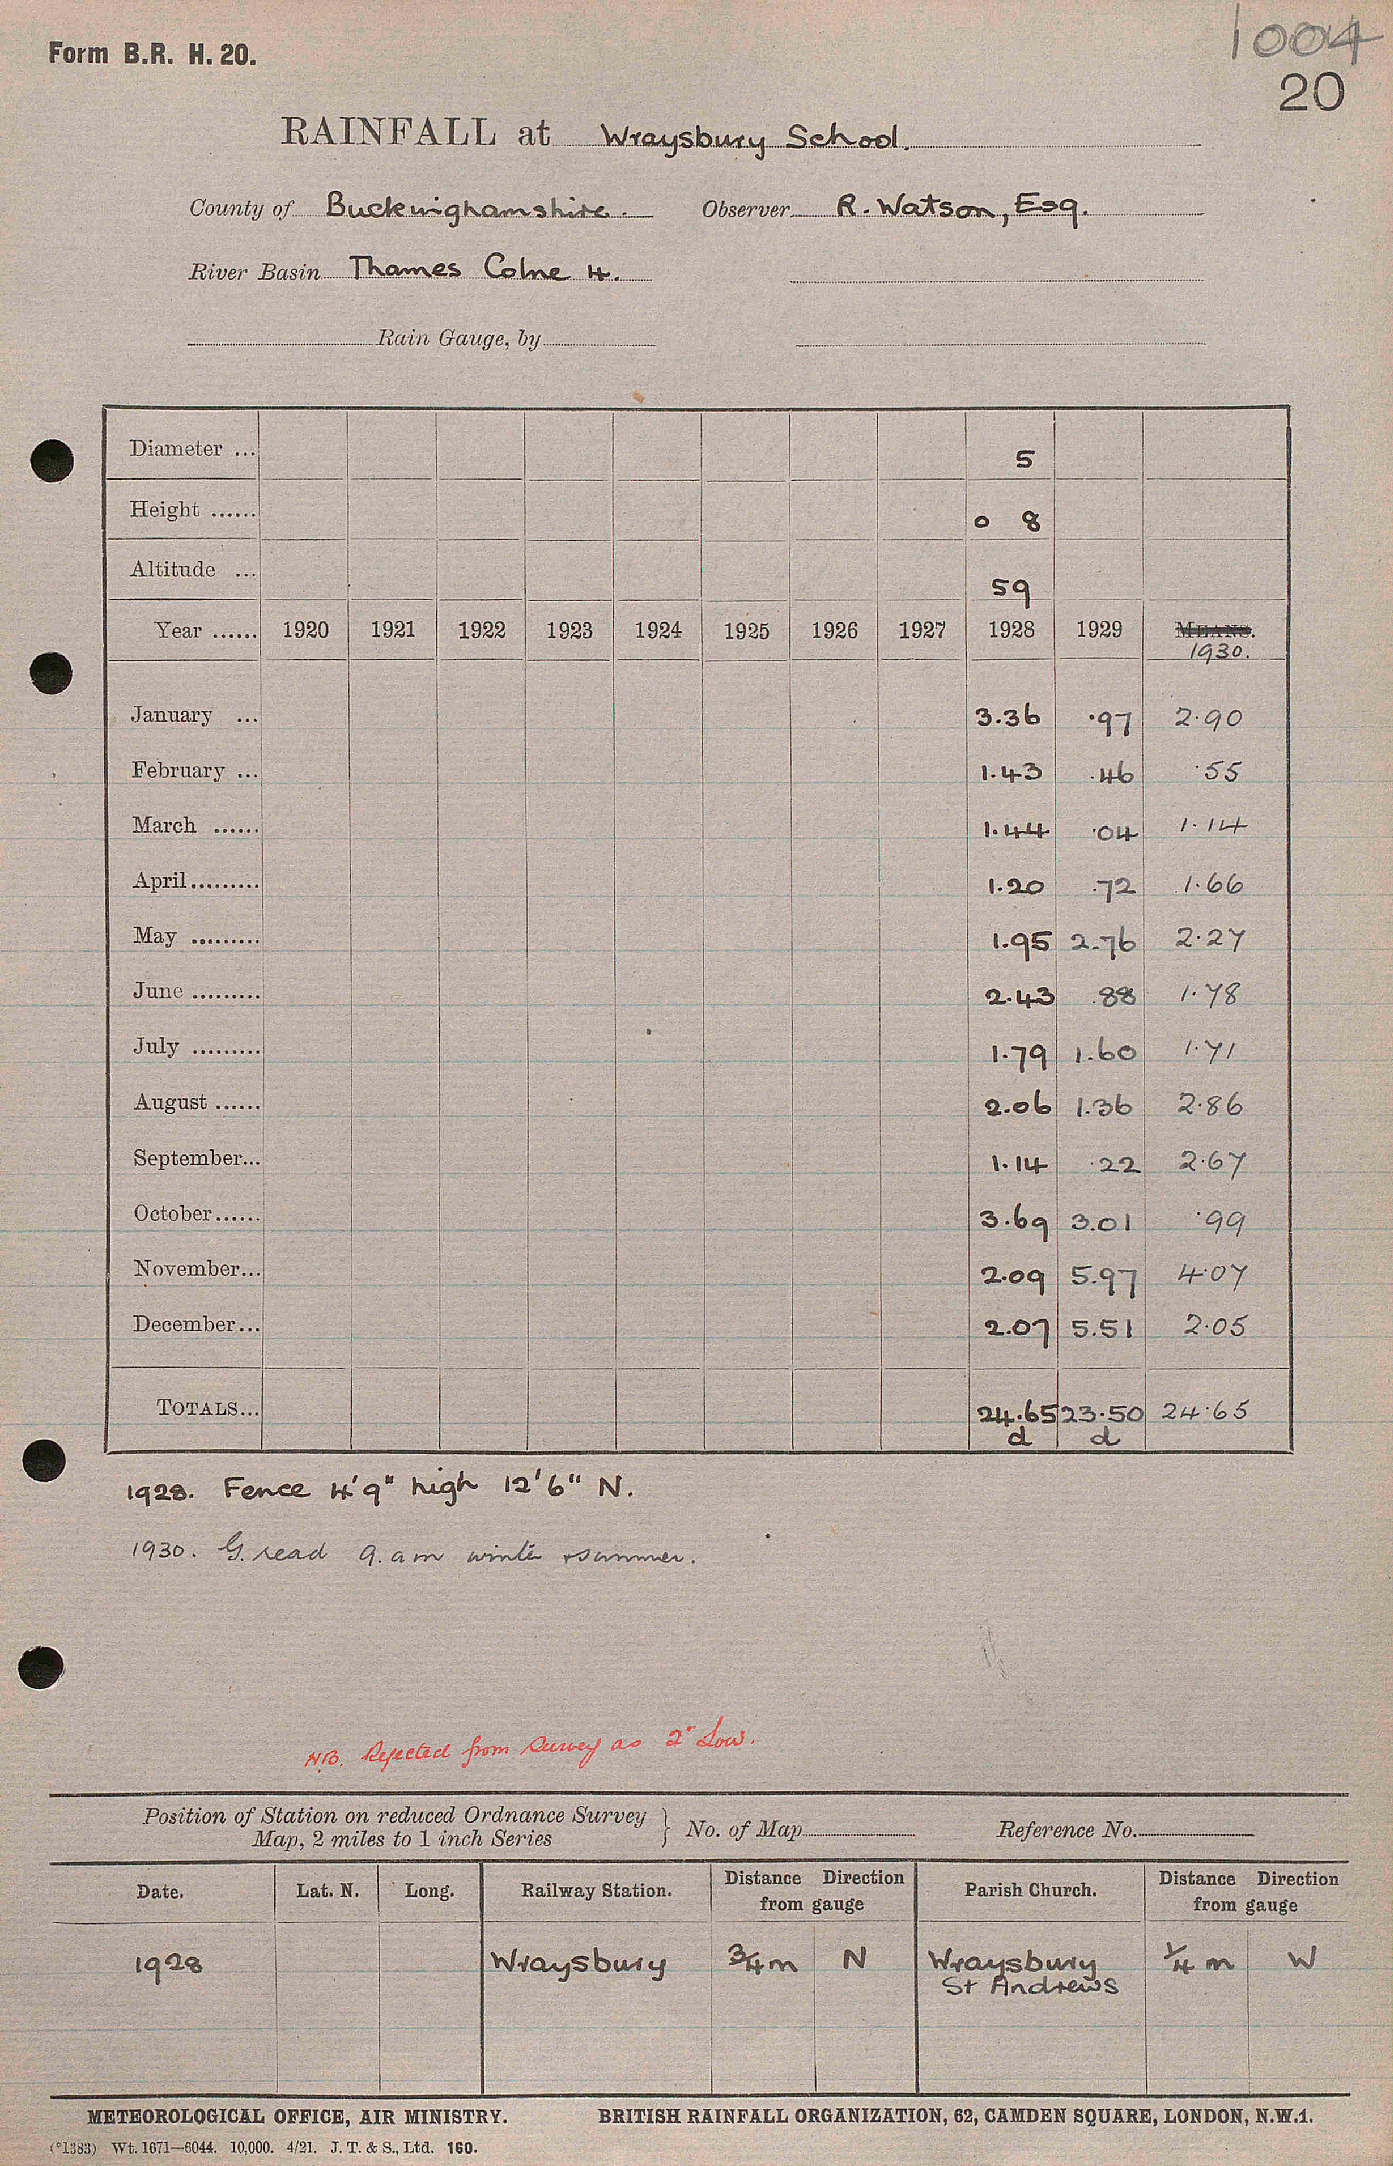 Form B.R. H. 20.
1004
20
RAINFALL at Wraysbury School.
County of Buckinghamshire. Observer R. Watson, Esq.
River Basin Thames Colne 4.
Rain Gauge, by
Diameter ... 5
Height ...... 0 8
Altitude ... 59
Year ...... 1920 1921 1922 1923 1924 1925 1926 1927 1928 1929 MEANS.
1930.
January ... 3.36 .97 2.90
February ... 1.43 .46 .55
March ...... 1.44 .04 1.14
April......... 1.20 .72 1.66
May ......... 1.95 2.76 2.27
June ......... 2.43 .88 1.78
July ......... 1.79 1.60 1.71
August ...... 2.06 1.36 2.86
September... 1.14 .22 2.67
October...... 3.69 3.01 .99
November... 2.09 5.97 4.07
December... 2.07 5.51 2.05
TOTALS... 24.65 23.50 24.65
d d
1928. Fence 4'9" high 12'6" N.
1930. G. read 9. am winter & summer.
N.B. Rejected from Survey as 2" Low.
Position of Station on reduced Ordnance Survey
Map, 2 miles to 1 inch Series } No. of Map Reference No.
Date. Lat. N. Long. Railway Station. Distance Direction from gauge Parish Church. Distance Direction from gauge
1928 Wraysbury 3/4 m N Wraysbury 1/4 m W
St Andrews
METEOROLOGICAL OFFICE, AIR MINISTRY. BRITISH RAINFALL ORGANIZATION, 62, CAMDEN SQUARE, LONDON, N.W.1.
(*1383) Wt. 1671—6044. 10,000. 4/21. J. T. & S., Ltd. 160.